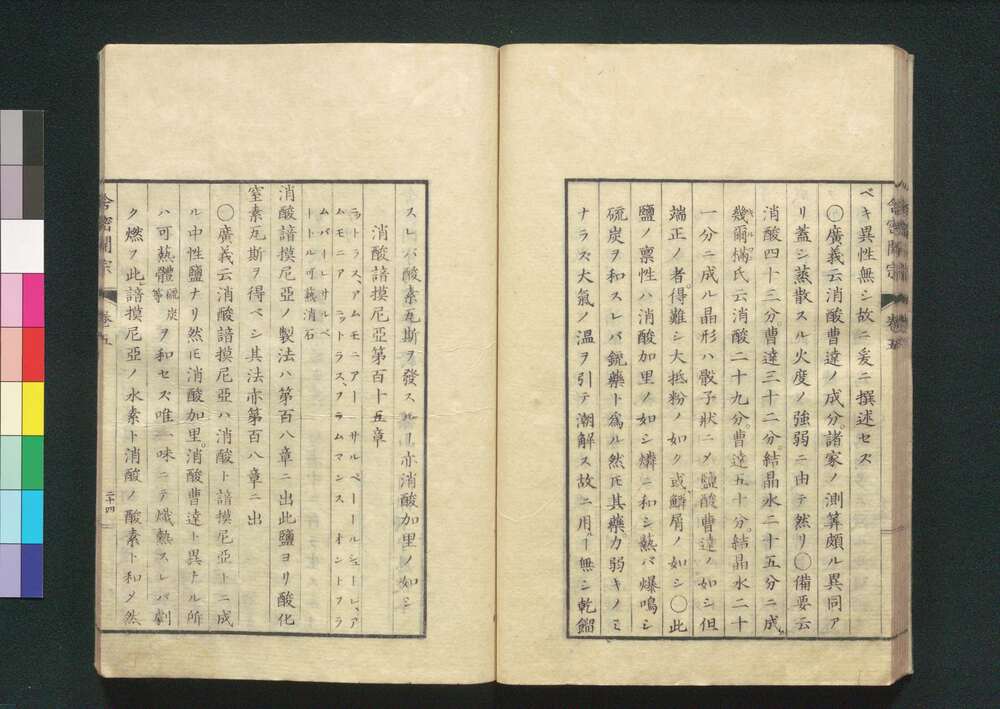 ベキ異性無シ故ニ爰ニ撰述セズ
〇廣義云消酸曹達ノ成分諸家ノ測筭頗ル異同ア
リ蓋シ蒸散スル火度ノ強弱ニ由テ然リ〇備要云
消酸四十三分。曹達三十二分。結晶水二十五分ニ成ル
幾爾満氏云消酸二十九分。曹達五十分。結晶水二十
一分ニ成ル晶形ハ骰子狀ニメ鹽酸曹達ノ如シ但
端正ノ者。得難シ大抵粉ノ如ク或鱗屑ノ如シ〇此
鹽ノ禀性ハ消酸加里ノ如シ燐ニ和シ熱バ爆鳴シ
硫炭ヲ和スレバ銃藥ト爲ル然𪜈其藥力弱キノミ
ナラズ大氣ノ溫ヲ引テ潮解ス故ニ用ヿ無シ乾餾
舍密開宗 巻五
スレバ酸素瓦斯ヲ發スルヿ亦消酸加里ノ如シ
消酸諳摸尼亞第百十五章
ニトラス、アムモニアー サルペートルシューレ、ア
ムモニア ニトラス、フラムマンス オントフラ
ムバーレ、サルペ
ートル 可蕪消石
消酸諳摸尼亞ノ製法ハ第百八章ニ出此鹽ヨリ酸化
窒素瓦斯ヲ得ベシ其法亦第百八章ニ出
〇廣義云消酸諳摸尼亞ハ消酸ト諳摸尼亞トニ成
ル中性鹽ナリ然𪜈消酸加里。消酸曹達ト異トル所
ハ可熱體硫炭等ヲ和セズ唯一味ニテ熾熱スレバ劇
ク燃フ此諳摸尼亞ノ水素ト消酸ノ酸素ト和メ然
舍密開宗 巻五 二十四